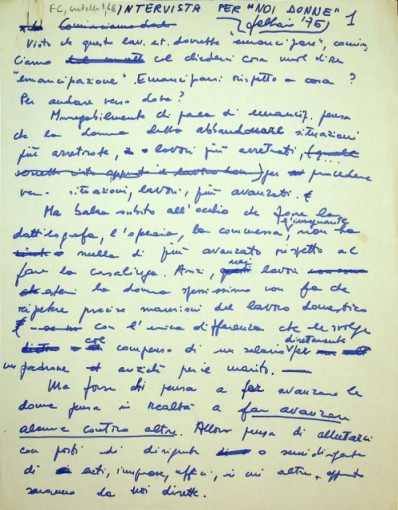 INTERVISTA PER "NOI DONNE" 1
(febbraio '75)
Visto che questo lav. est. dovrebbe "emancipare", comin-
ciamo col chiederci cosa vuol dire
"emancipazione". Emanciparsi rispetto a cosa?
Per andare verso dove?
che la donna debba abbandonare situazioni
più arretrate, lavori più arretrati,
per procedere
verso situazioni, lavori, più avanzati.
Ma balza subito all'occhio che fare la
dattilografa, l'operaia, la commessa, l'insegnante, non ha
nulla di più avanzato rispetto al
fare la casalinga. Anzi, nei lavori
esterni la donna spessissimo non fa che
ripetere precise mansioni del lavoro domestico
con l'unica differenza che le svolge
dietro compenso di un salario direttamente per
un padrone anziché per il marito.
Ma forse chi pensa a far avanzare le
donne pensa in realtà a far avanzare
alcune contro altre. Allora pensa di allettarci
con posti di dirigente o semidirigente
di enti, imprese, uffici, in cui altre
saranno da noi dirette.